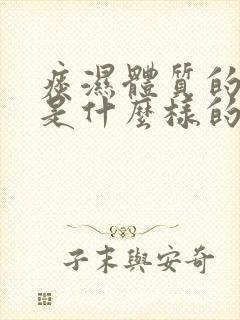 痰濕體質的
是什麼樣的
子末與安奇